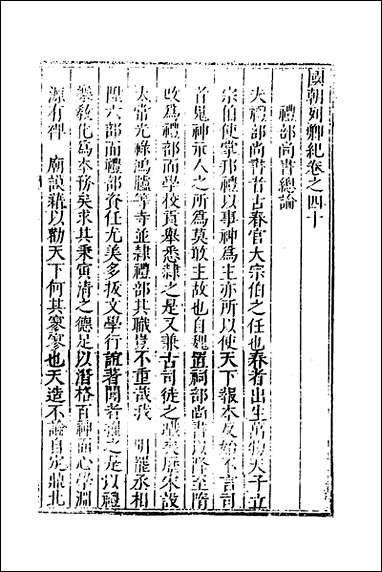 國朝列卿紀卷之四十
禮部尚書總論
夫禮部尚書者古春官大宗伯之任也春者出生萬物天子立
宗伯使掌邦禮以事神為主亦所以使天下報本反始不言司
首鬼神示人之所為莫敢主故也自魏置祠部尚書以降至隋
改為禮部而學校貢舉悉隸之是又兼古司徒之職矣唐宋設
太常光祿鴻臚等寺並隸禮部其職豈不重哉我 朝罷丞相
陞六部而禮部資任尤美多拔文學行誼著聞者擢之是以禮
樂敎化為本務矣求其秉寅清之德足以潛格百神而心學淵
源有裨 廟謨藉以勸天下何其寥寥也天造不論自定鼎北